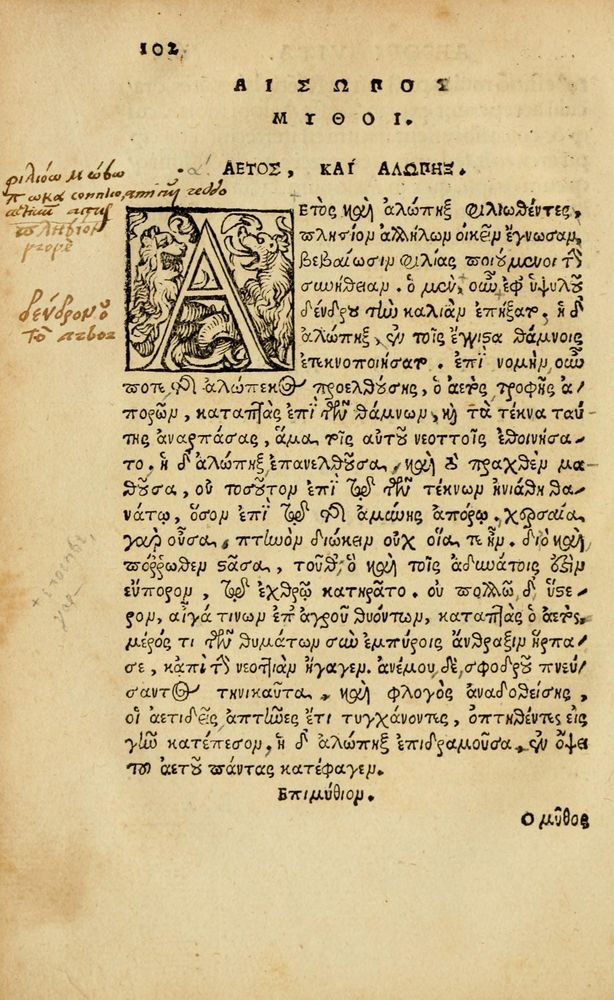 102
ΑΙΣΩΠΟΣ
ΜΥΘΟΙ.
ΑΕΤΟΣ, ΚΑΙ ΑΛΩΠΗΞ.
ΑΕΤὸς καὶ ἀλώπηξ φιλιωθέντες,
πλησίον ἀλλήλων οἰκεῖν ἔγνωσαν,
βεβαίωσιν φιλίας ποιούμενοι τὴν
συνήθειαν. ὁ μὲν οὖν ἐφ' ὑψηλοῦ
δένδρου τὴν καλιὰν ἔπηξατ. ἡ δ'
ἀλώπηξ, ἐν τοῖς ἔγγιστα θάμνοις
ἐτεκνοποιήσατ. ἐπὶ νομὴν οὖν
ποτε τῆς ἀλώπεκος προελθούσης, ὁ ἀετὸς τροφῆς ἀ-
πορῶν, καταπτὰς ἐπὶ τῶν θάμνων, καὶ τὰ τέκνα ταύ
της ἀναρπάσας, ἅμα τοῖς αὑτοῦ νεοττοῖς ἐθοινήσα-
το. ἡ δ' ἀλώπηξ ἐπανελθοῦσα, καὶ τὸ πραχθὲν μα-
θοῦσα, οὐ τοσοῦτον ἐπὶ τῷ τῶν τέκνων ἠνιάθη θα-
νάτῳ, ὅσον ἐπὶ τῷ τῆς ἀμύνης ἀπόρῳ. χερσαία
γὰρ οὖσα, πτηνὸν διώκειν οὐχ οἵα τε ἦν. διὸ καὶ
πόρρωθεν στᾶσα, τοῦθ' ὃ καὶ τοῖς ἀδυνάτοις ἐστὶν
εὔπορον, τῷ ἐχθρῷ κατηρᾶτο. οὐ πολλῷ δ' ὕστε-
ρον, αἶγά τινων ἐπ' ἀγροῦ θυόντων, καταπτὰς ὁ ἀετὸς,
μέρος τι τῶν θυμάτων σὺν ἐμπύροις ἄνθραξιν ἥρπα-
σε, κἀπὶ τὴν νεοττιὰν ἤγαγεν. ἀνέμου δὲ σφοδροῦ πνεύ
σαντος τηνικαῦτα, καὶ φλογὸς ἀναδοθείσης,
οἱ ἀετιδεῖς ἀπτῆνες ἔτι τυγχάνοντες, ὀπτηθέντες εἰς
γῆν κατέπεσον. ἡ δ' ἀλώπηξ ἐπιδραμοῦσα, ἐν ὄψει
τοῦ ἀετοῦ πάντας κατέφαγεν.
Ἐπιμύθιον.
Ὁ μῦθος
δένδρον ὁ